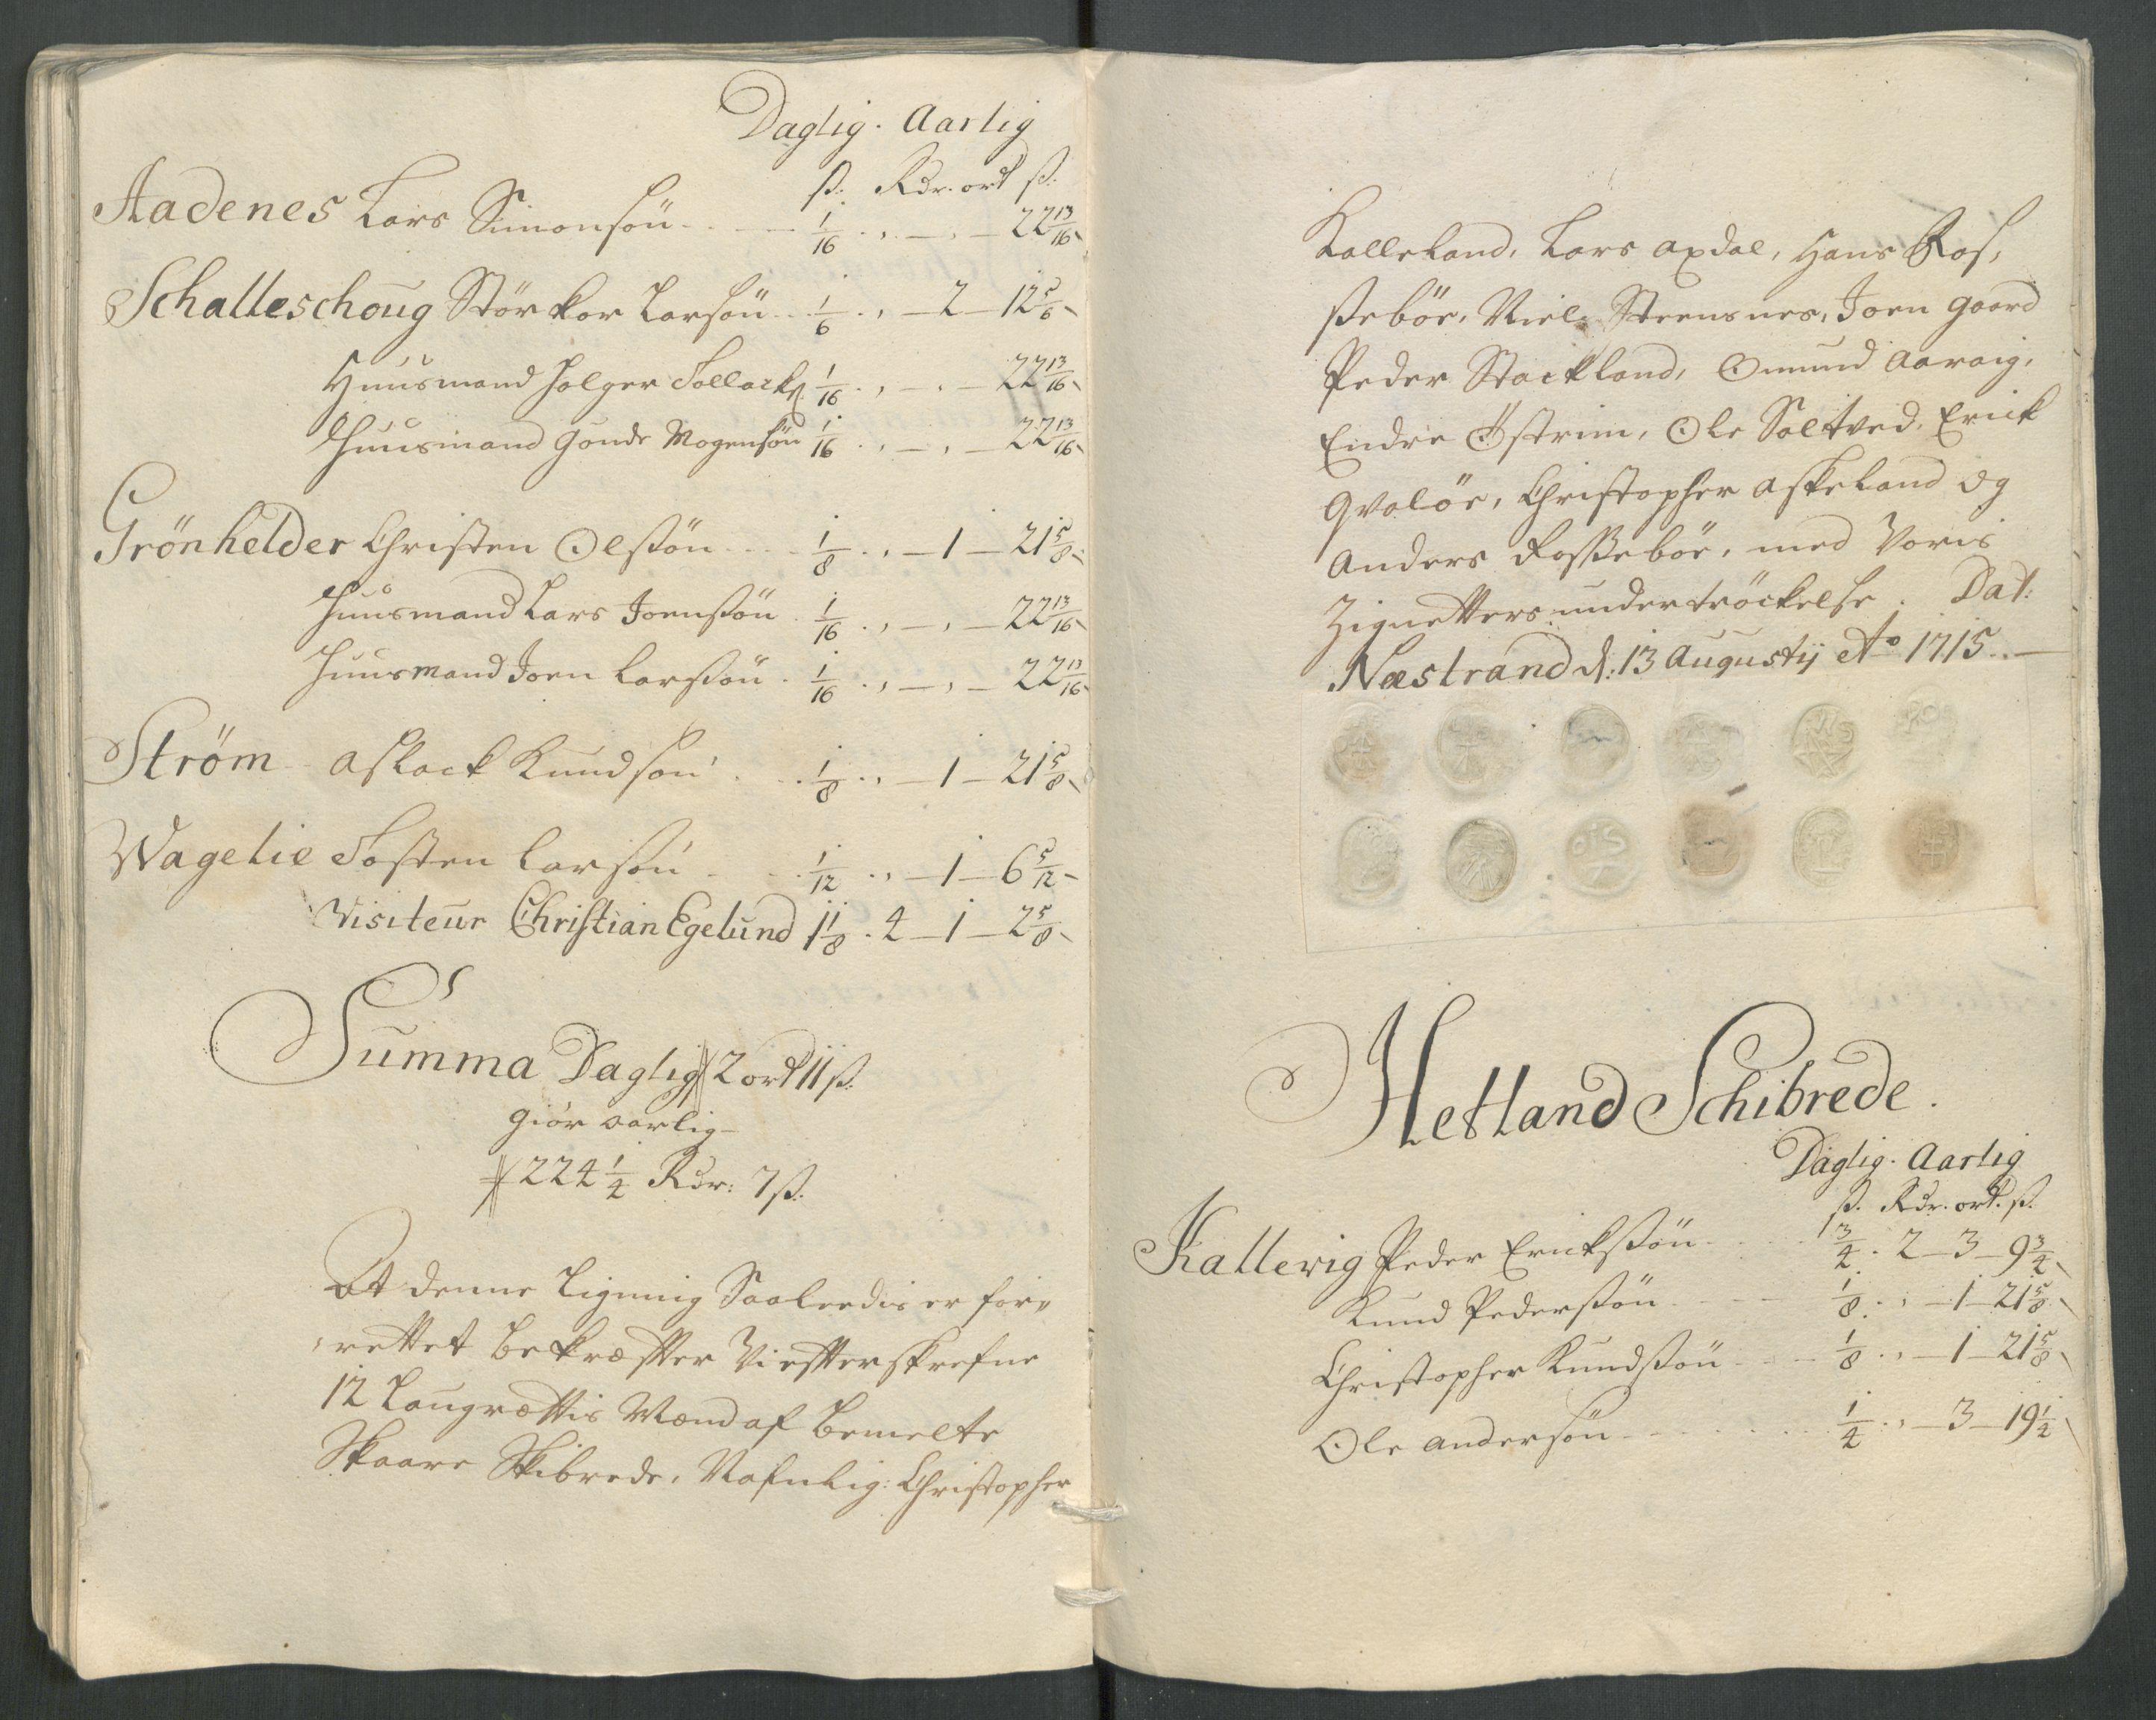 Daglig. Aarlig
ß: Rdr. ort ß:
Aadenes Lars Simonsön 1/16 . „ — „ — 22 13/16
Schalleschoug Störkor Larsön 1/6 . „ — 2 — 12 5/6
Huusmand Holger Sollack 1/16 . „ — „ — 22 13/16
Huusmand Gonde Mogensön 1/16 . „ — „ — 22 13/16
Grönhelder Christen Olsön 1/8 . „ — 1 — 21 5/8
Huusmand Lars Joensön 1/16 . „ — „ — 22 13/16
Huusmand Joen Larsön 1/16 . „ — „ — 22 13/16
Ström Aslack Knudsön 1/8 . „ — 1 — 21 5/8
Wagelie Tosten Larsön 1/12 . „ — 1 — 6 5/12
Visiteur Christian Egelund 1 1/8 . 4 — 1 — 2 5/8
Summa Daglig 2 ort 11 ß:
Giör aarlig
224 1/4 Rdr: 7 ß:
At denne Ligning Saaleedis er for„
rettet bekræfter Vi efterskrefne
12 Laugrættis Mænd af bemelte
Skaare Skibrede, Nafnlig: Christopher
Kalleland, Lars Axdal, Hans Ros„
ßebör, Niels Steensnes, Joen Gaard
Peder Stackland, Omund Aaraig,
Endre Östrim, Ole Saltved, Erick
Qvalöe, Christopher Askeland og
Anders Roßebör, med Voris
Zignetters undertröckelse. Dat:
Næstrand d: 13 Augustij Ao 1715.
Hetland Schibrede.
Daglig. Aarlig
ß. Rdr. ort. ß.
Kallevig Peder Ericksön 3/4 . 2 — 3 — 9 3/4
Knud Pedersön 1/8 . „ — 1 — 21 5/8
Christopher Knudsön 1/8 . „ — 1 — 21 5/8
Ole Andersön 1/4 . „ — 3 — 19 1/4